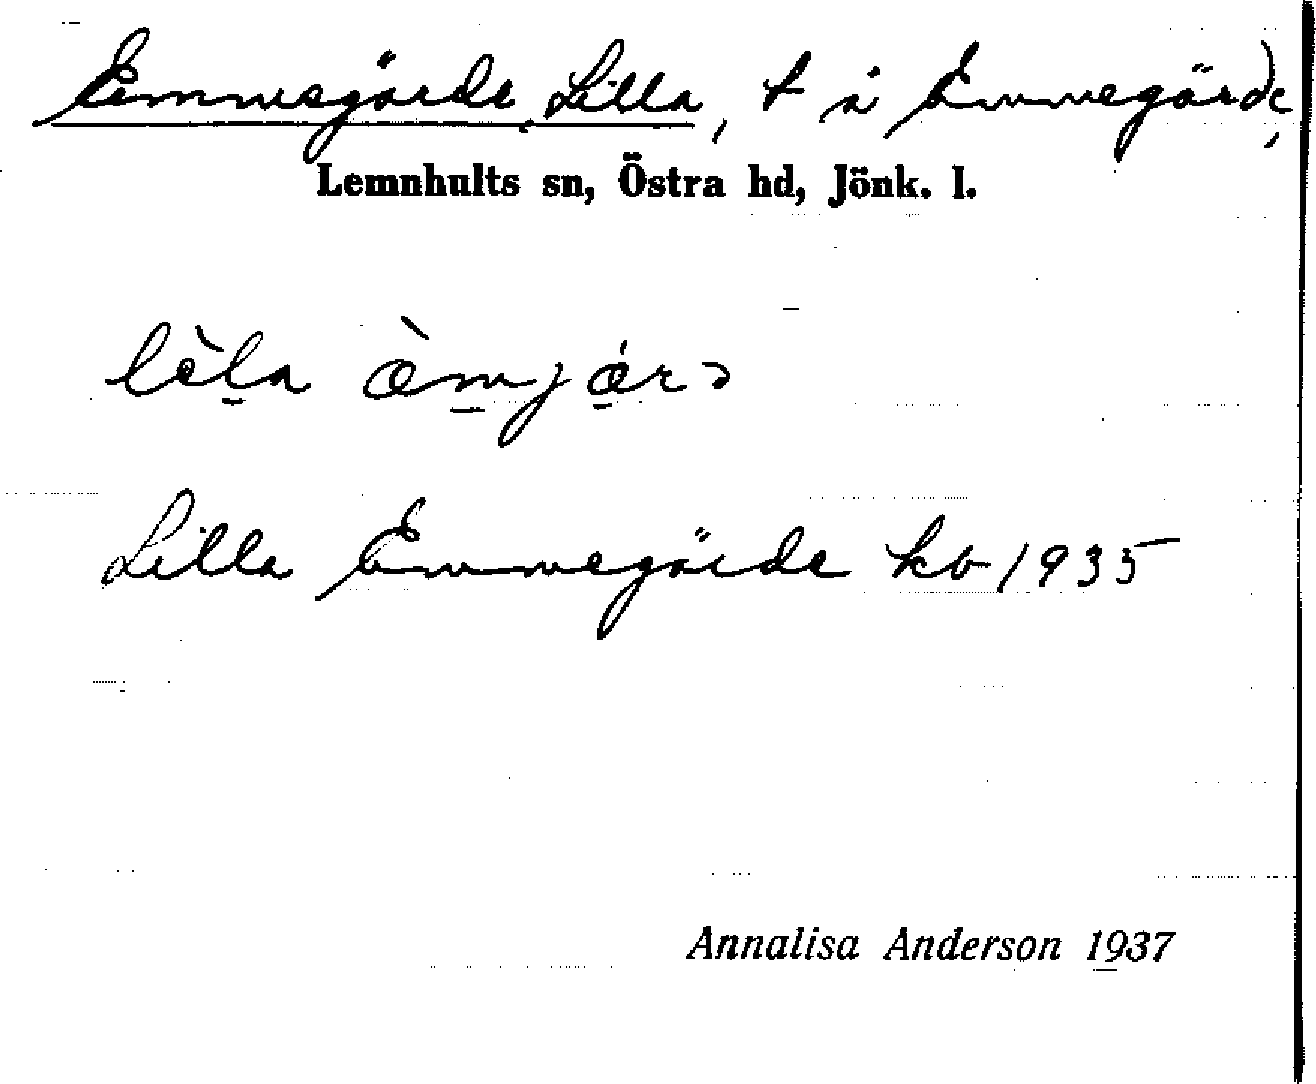 Emmegärde, Lilla, t å Emmegärde,
Lemnhults sn, Östra hd, Jönk. l.
Lilla Emmegärde kb 1935
Annalisa Anderson 1937